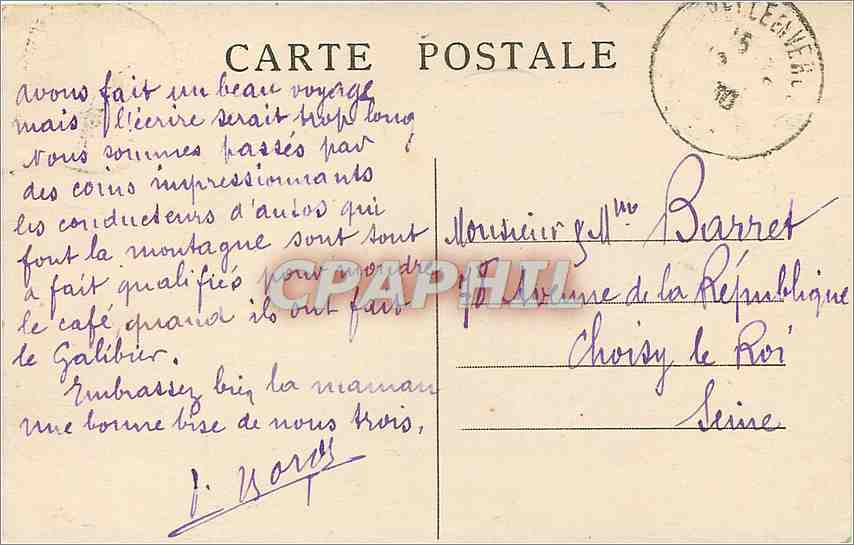 CARTE POSTALE
avons fait un beau voyage
mais l'écrire serait trop long
Nous sommes passés par
des coins impressionnants
les conducteurs d'autos qui
font la montagne sont tout
a fait qualifiés pour moudre
le café, quand ils ont fait
le Galibier.
Embrassez bien la maman
une bonne bise de nous trois.
Monsieur & Mme Barret
Avenue de la République
Choisy le Roi
Seine
CPAPHIL